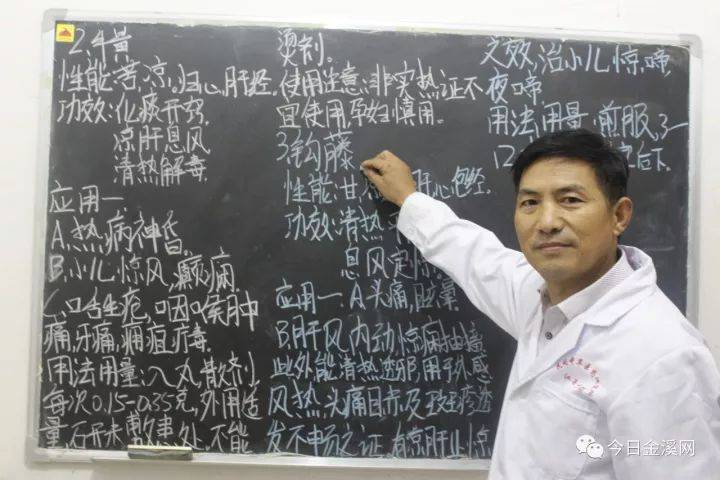 2.牛黄
性能:苦,凉。归心,肝经.
功效:化痰开窍,
凉肝息风
清热解毒.
应用一
A.热病神昏.
B.小儿惊风,癫痫.
C.口舌生疮,咽喉肿
痛,牙痛,痈疽疔毒.
用法用量:入丸散剂
每次0.15-0.35克,外用适
量,石开未敷患处.不能
煎剂。
使用注意:非实热证不
宜使用,孕妇慎用.
3.钩藤
性能:甘,肝心包经.
功效:清热
息风定惊
应用一.A头痛,眩晕
B.肝风内动惊痫抽搐
此外能清热透邪用于外感
风热头痛目赤及斑疹透
发不畅之证.有凉肝止惊
之效,治小儿惊啼,
夜啼
用法用量:煎服,3一
12 后下.
今日金溪网